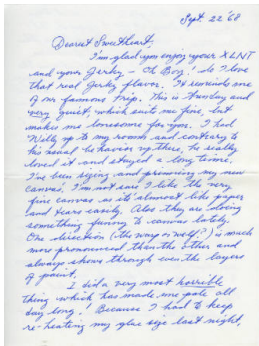 Sept. 22 '68
Dearest Sweetheart,
I'm glad you enjoy your XLNT
and your Jerky - Oh Boy! do I love
that real Jerky flavor. It reminds me
of our famous trip. This is Sunday and
very quiet, which suits me fine, but
makes me lonesome for you. I had
Welly up to my room and contrary to
his usual behavior up there, he really
loved it and stayed a long time.
I've been sizing and priming my new
canvas. I'm not sure I like the very
fine canvas as it's almost like paper
and tears easily. Also they are doing
something funny to canvas lately.
One direction (the warp or woof?) is much
more pronounced than the other and
always shows through even the layers
of paint.
I did a very most horrible
thing which has made me pale all
day long! Because I had to keep
re-heating my glue size last night,